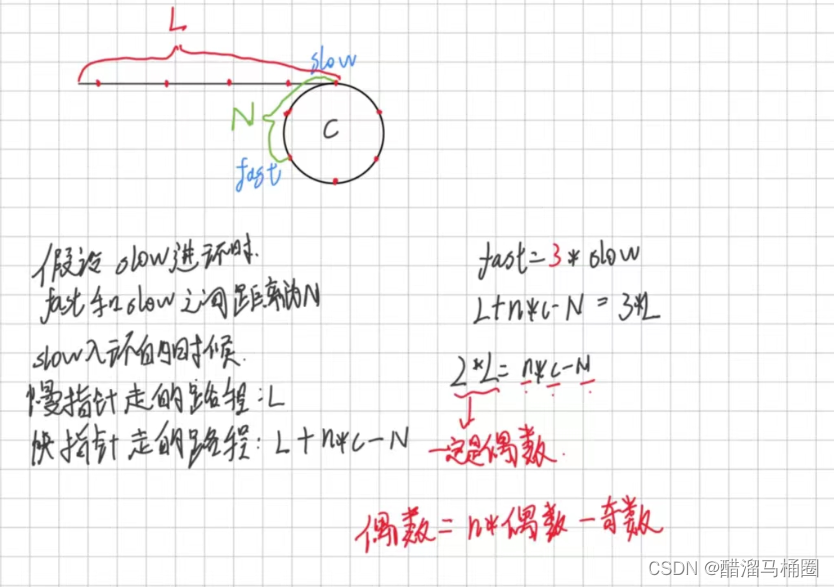 L
slow
N
C
fast
假设 slow进环时.
fast和slow之间距离为N
slow入环的时候.
慢指针走的路程:L
快指针走的路程:L+n*c-N
fast=3*slow
L+n*c-N=3*L
2*L=n*c-N
一定是偶数.
偶数=n*偶数-奇数
CSDN @醋溜马桶圈